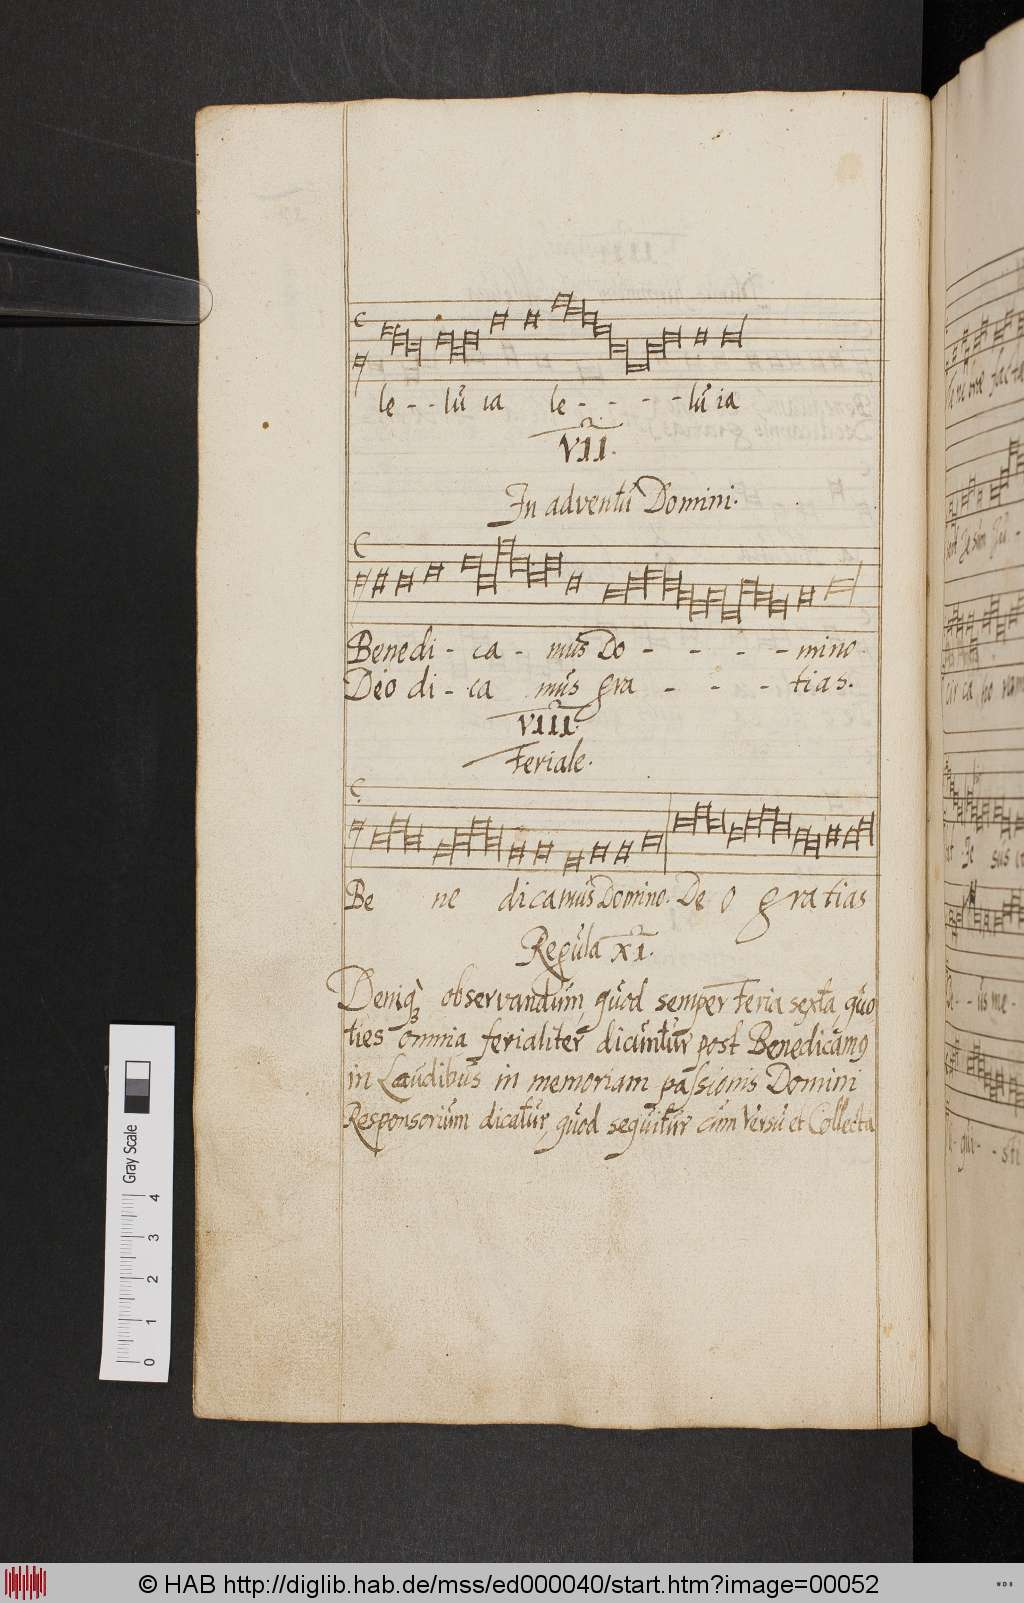 le - - lu ia le - - - - lu ia
VII.
In adventu Domini.
Benedi - ca - mus Do - - - - mino.
Deo di - ca mus gra - - - tias.
VIII.
Feriale.
Be ne dicamus Domino. De o gratias
Regula XI.
Deniqꝫ observandum, quod semper Feria sexta quo,
ties omnia ferialiter dicuntur post Benedicamꝰ
in Laudibus in memoriam passionis Domini
Responsorium dicatur, quod sequitur cum Versu et Collecta
Gray Scale
4
3
2
1
0
© HAB http://diglib.hab.de/mss/ed000040/start.htm?image=00052